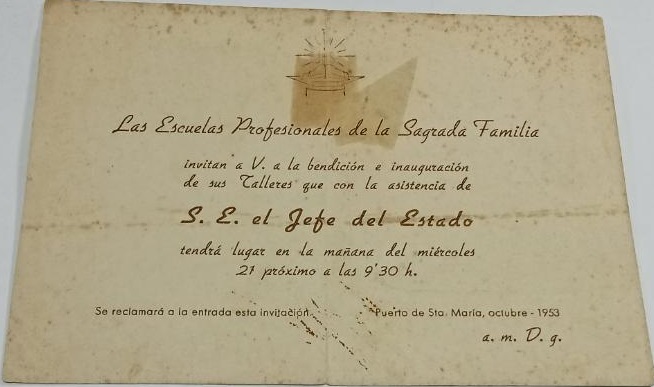 Las Escuelas Profesionales de la Sagrada Familia
invitan a V. a la bendición e inauguración
de sus Talleres que con la asistencia de
S. E. el Jefe del Estado
tendrá lugar en la mañana del miércoles
21 próximo a las 9'30 h.
Se reclamará a la entrada esta invitación.
Puerto de Sta. María, octubre - 1953
a. m. D. g.